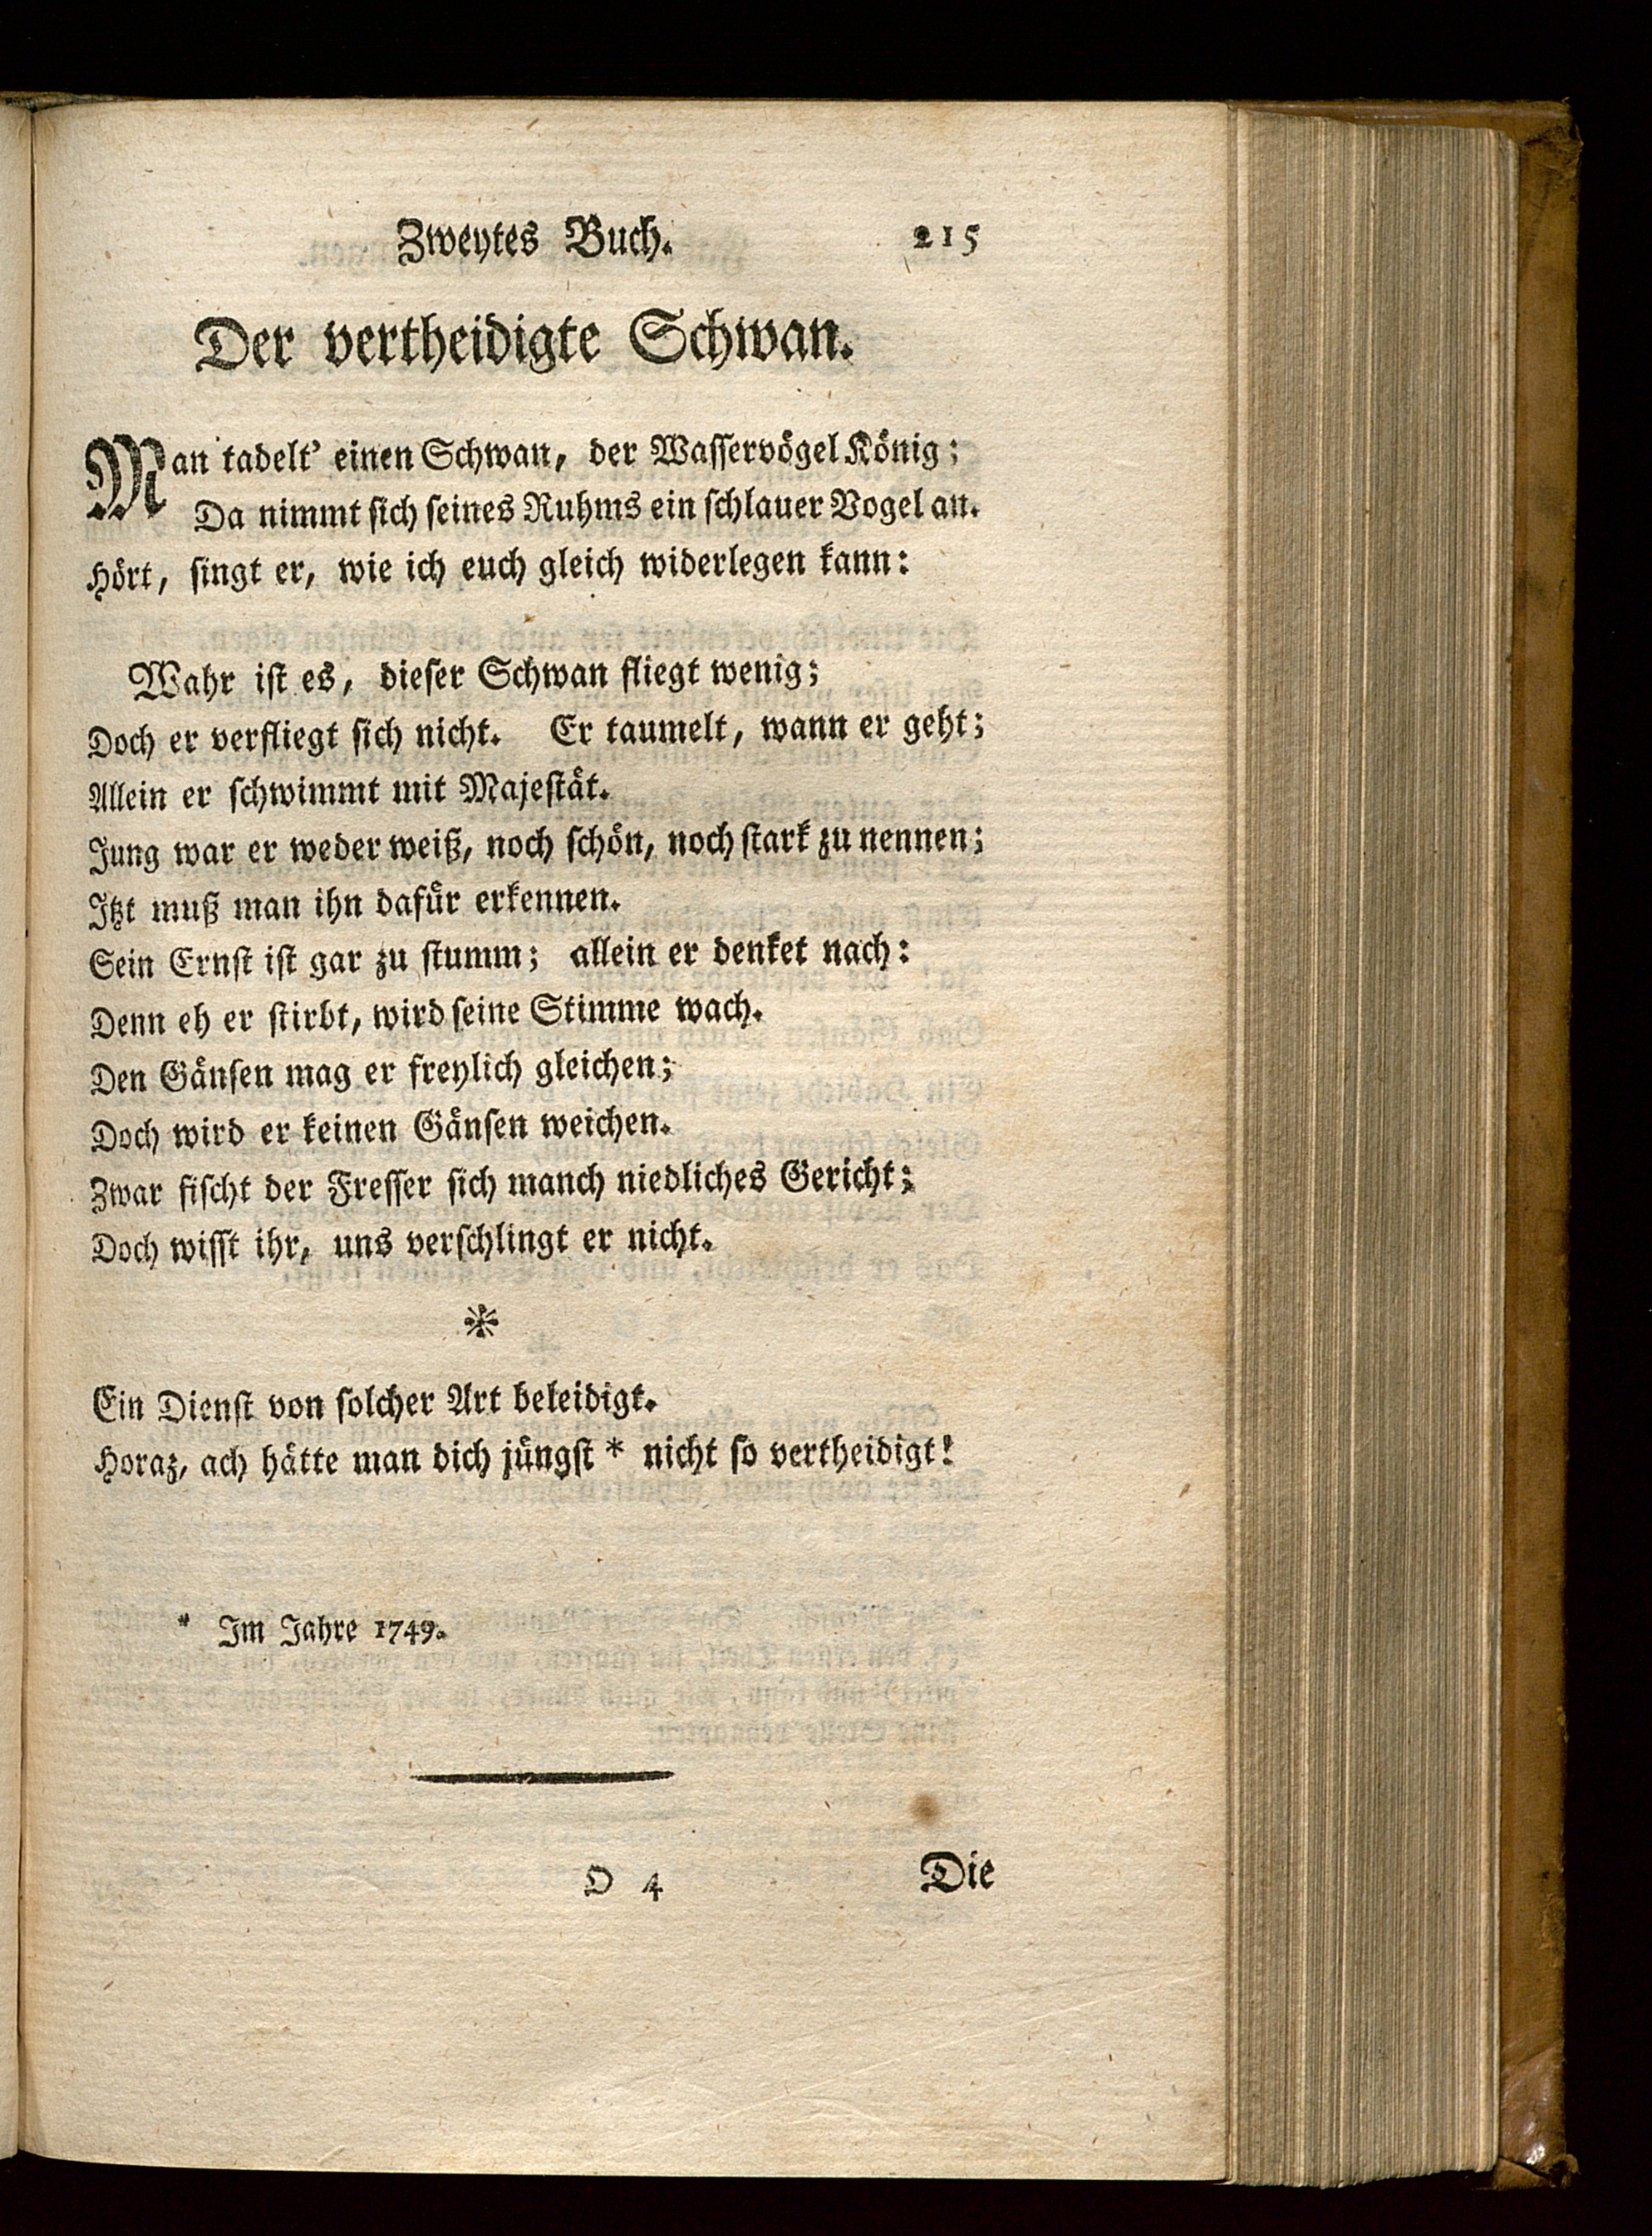 Zweytes Buch. 215
Der vertheidigte Schwan.
Man tadelt’ einen Schwan, der Waſſervögel König;
Da nimmt ſich ſeines Ruhms ein ſchlauer Vogel an.
Hört, ſingt er, wie ich euch gleich widerlegen kann:
Wahr iſt es, dieſer Schwan fliegt wenig;
Doch er verfliegt ſich nicht. Er taumelt, wann er geht;
Allein er ſchwimmt mit Majeſtät.
Jung war er weder weiß, noch ſchön, noch ſtark zu nennen;
Itzt muß man ihn dafür erkennen.
Sein Ernſt iſt gar zu ſtumm; allein er denket nach:
Denn eh er ſtirbt, wird ſeine Stimme wach.
Den Gänſen mag er freylich gleichen;
Doch wird er keinen Gänſen weichen.
Zwar fiſcht der Freſſer ſich manch niedliches Gericht;
Doch wiſſt ihr, uns verſchlingt er nicht.
*
Ein Dienſt von ſolcher Art beleidigt.
Horaz, ach hätte man dich jüngſt * nicht ſo vertheidigt!
* Im Jahre 1749.
O 4 Die